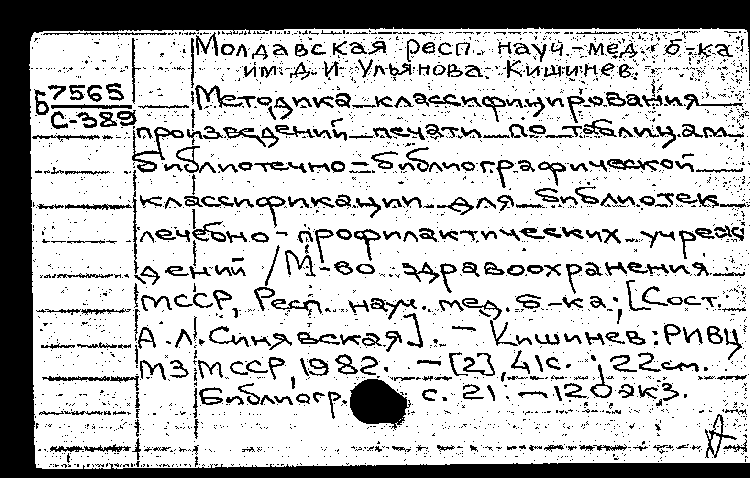 Молдавская респ. науч-мед. б-ка
им. Д. И Ульянова. Кишинев.
Б 7565
С-389
Методика классифицирования
произведений печати по таблицам
библиотечно-библиографической
классификации для библиотек
лечебно-профилактических учреж
дений / М-во здравоохранения
МССР, Респ. науч. мед. б-ка; [Сост.
А. Л. Синявская]. — Кишинев: РИВЦ
МЗ МССР, 1982. — [2], 41с. ; 22см.
Библиогр. с. 21. — 120 экз.